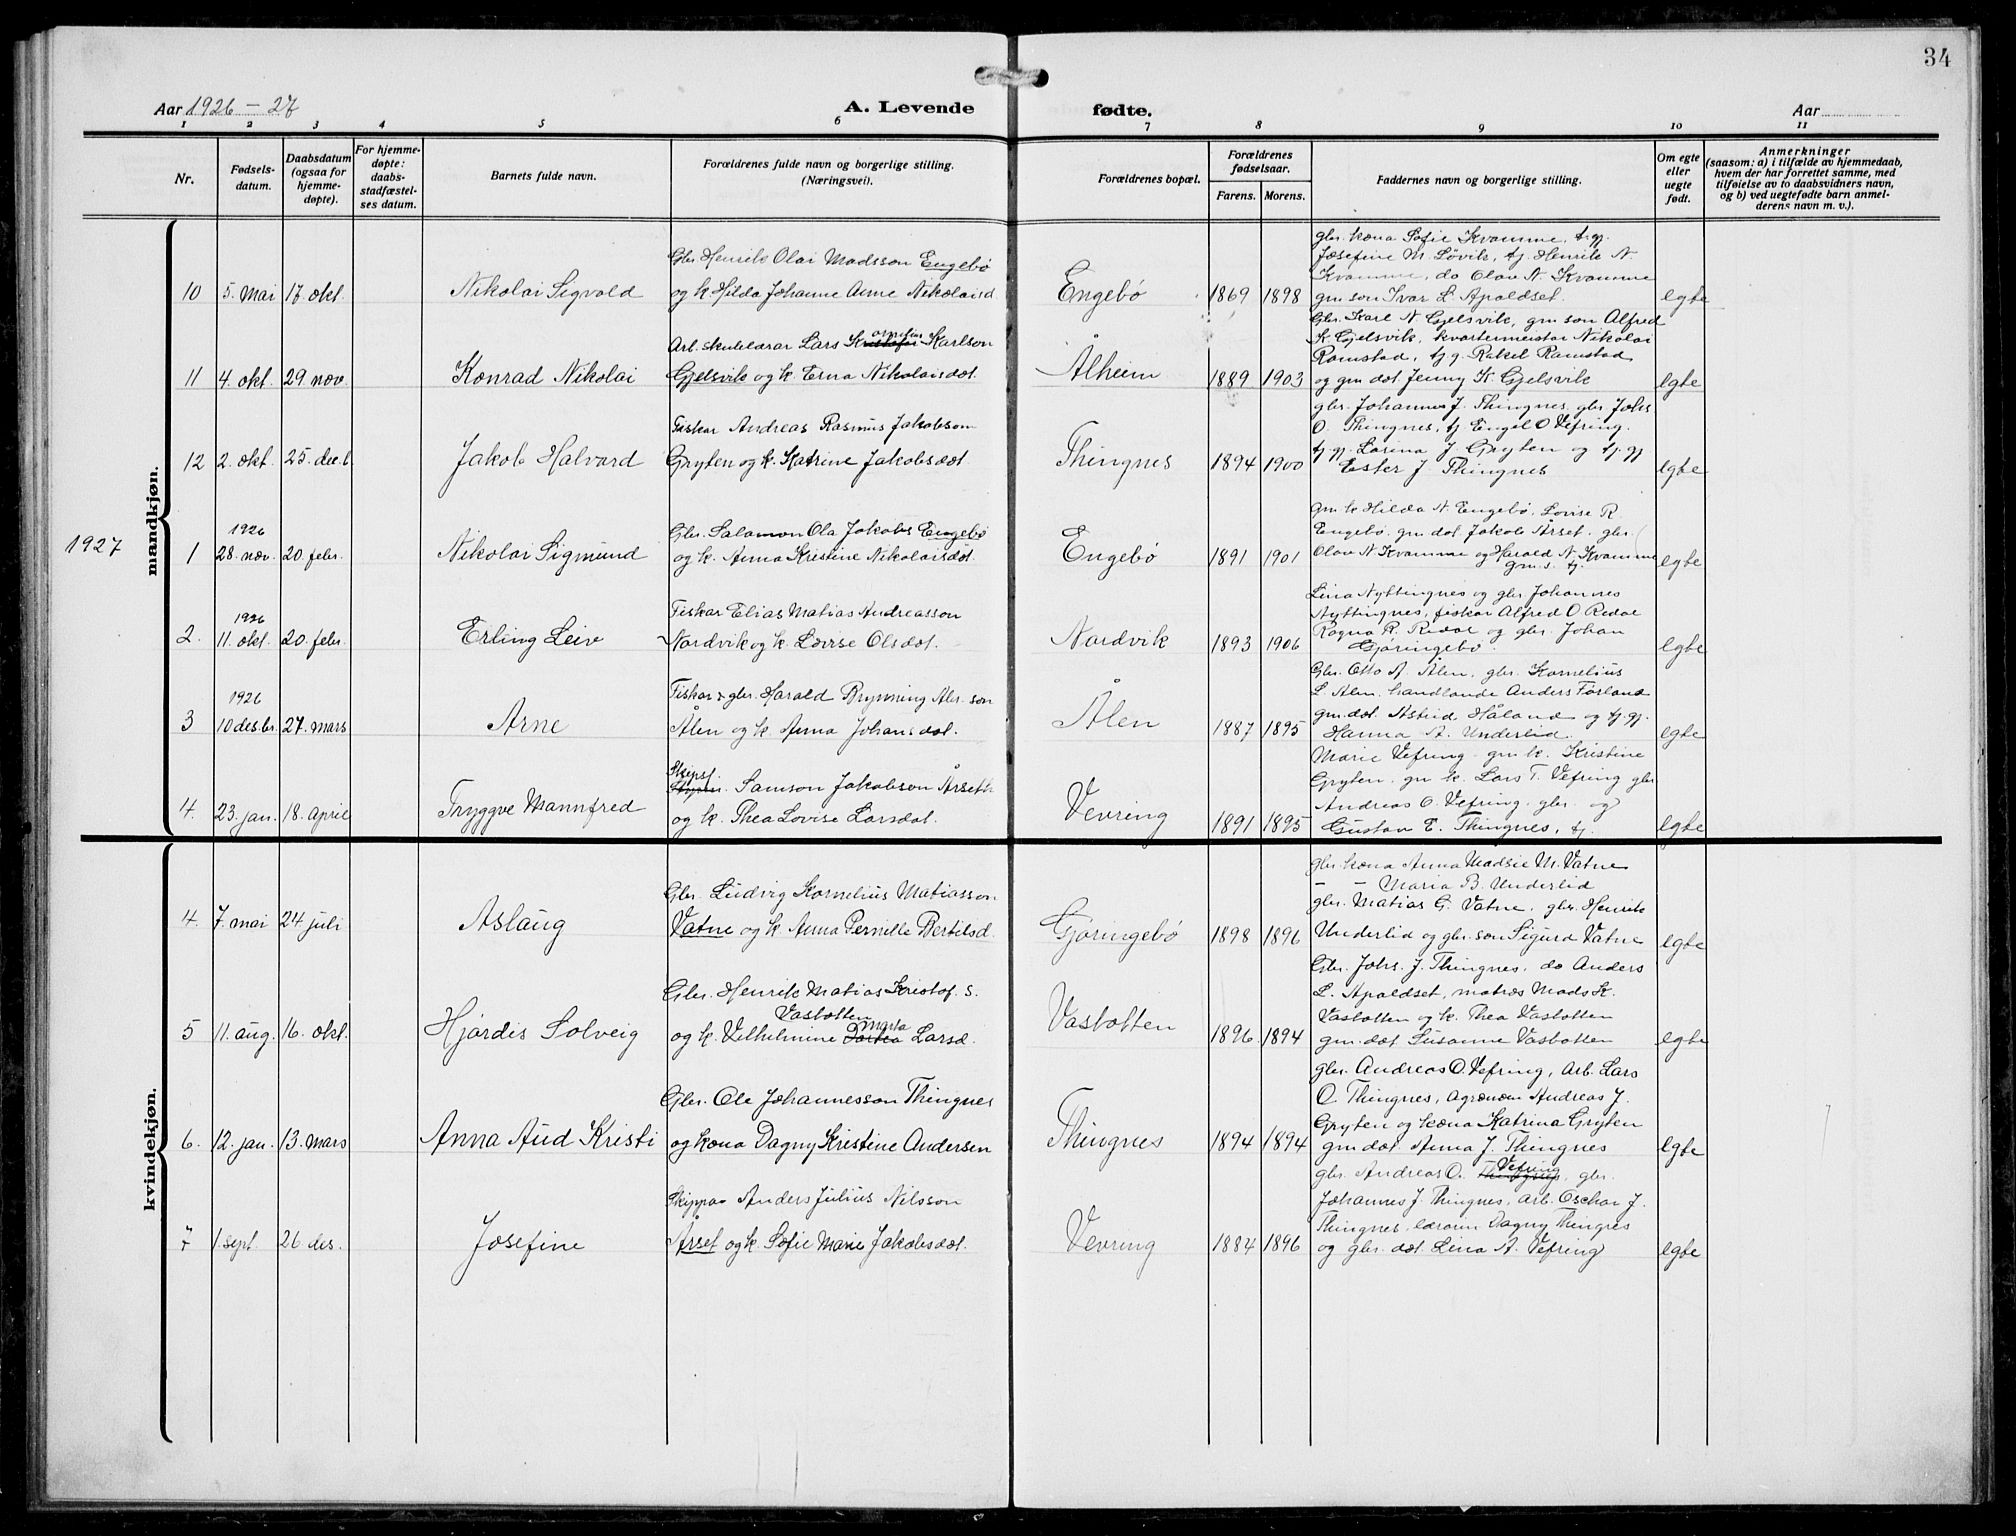 34
Aar 1926 – 27
A. Levende fødte.
Aar
1 2 3 4 5 6 7 8 9 10 11
Nr.
Fødsels-
datum.
Daabsdatum
(ogsaa for
hjemme-
døpte).
For hjemme-
døpte:
daabs-
stadfæstel-
ses datum.
Barnets fulde navn.
Forældrenes fulde navn og borgerlige stilling.
(Næringsvei).
Forældrenes bopæl.
Forældrenes
fødselsaar.
Farens. Morens.
Faddernes navn og borgerlige stilling.
Om egte
eller
uegte
født.
Anmerkninger
(saasom: a) i tilfælde av hjemmedaab,
hvem der har forrettet samme, med
tilføielse av to daabsvidners navn,
og b) ved uegtefødte barn anmel-
derens navn m. v.).
mandkjøn.
10 5. mai 17. okt. Nikolai Sigvald
Gbr. Henrik Olai Madsson Engebø
og k. Hilda Johanne Anne Nikolaisd.
Engebø 1869 1898
gbr. kona Sofie Kvamme, tj.gj.
Josefine M. Løvik, tj. Henrik N.
Kvamme, do Olav N. Kvamme
gm. son Ivar L. Apaldset.
egte
11 4. okt. 29 nov. Konrad Nikolai
Arb. skulelærar Lars Kornelius Karlson
Gjelsvik og k. Erna Nikolaisdot.
Ålheim 1889 1903
Gbr. Karl N. Gjelsvik, gm. son Alfred
K. Gjelsvik, kvartermeister Nikolai
Ramstad, tj. g. Rakel Ramstad
og gm dot. Jenny K. Gjelsvik
egte
12 2. okt. 25. des. Jakob Halvard
Fiskar Andreas Rasmus Jakobson
Gryten og k. Katrine Jakobsdot.
Thingnes 1894 1900
gbr. Johannes J. Thingnes, gbr. Johs
O. Thingnes, tj. Engel O Vefring.
tj. gj. Larina J. Gryten og tj. gj
Ester J. Thingnes
egte
1927
1 1926 28. nov. 20. febr. Nikolai Sigmund
Gbr. Salamon Ola Jakobs. Engebø
og k. Anna Kristine Nikolaisdot.
Engebø 1891 1901
gm. k Hilda N. Engebø, Lovise R
Engebø. gm. dot. Jakob Årset. gbr.
Olav N Kvamme og Harald N. Kvamme
gm. s. tj.
egte
2. 1926 11. okt. 20. febr. Erling Leiv
Fiskar Elias Matias Andreasson
Nordvik og k. Lovise Olsdot.
Nordvik 1893 1906
Lina Nyttingnes og gbr Johannes
Nyttingnes, fiskar Alfred O. Redal
Ragna R. Redal og gbr. Johan
Gjøringebø.
egte
3 1926 10 des.br. 27. mars Arne
Fiskar & gbr. Harald Brynning Albr. son
Ålen og k. Anna Johansdot.
Ålen 1887 1895
Gbr. Otto A. Ålen, gbr. Kornelius
L. Ålen. handlande Anders Førland
gm. dot. Astrid Håland og tj. gj.
Hanna A. Underlid.
egte
4. 23. jan. 18. april Tryggve Mannfred
Skipsf. Samson Jakobson Årseth
og k. Thea Lovise Larsdot.
Vevring 1891 1895
Marie Vefring. gm. k. Kristine
Gryten. gm k. Lars T. Vefring gbr
Andreas O. Vefring. gbr. og
Gustav E. Thingnes, tj.
egte
kvindekjøn.
4. 7. mai 24 juli Aslaug
Gbr. Ludvig Kornelius Matiasson
Vatne og k. Anna Pernille Bertilsd.
Gjøringebø 1898 1896
gbr. kona Anna Madsie M. Vatne
– – Maria B. Underlid
gbr. Matias G. Vatne. gbr. Henrik
Underlid og gbr. son Sigurd Vatne
egte
5 11. aug. 16. okt. Hjørdis Solveig
Gbr. Henrik Matias Kristof. s.
Vasbotten
og k. Vilhelmine Marta Larsd.
Vasbotten 1896 1894
Gbr. Johs. J. Thingnes. do Anders
L. Apaldset, matros Mads K.
Vasbotten og k. Thea Vasbotten
gm. dot Susanne Vasbotten
egte
6. 12. jan. 13. mars Anna Aud Kristi
Gbr. Ole Johannesson Thingnes
og kona Dagny Kristine Andersen
Thingnes 1894 1894
gbr. Andreas O. Vefring, Arb. Lars
O. Thingnes, Agronom Andreas J.
Gryten og kona Katrina Gryten
gm. dot. Anna J. Thingnes
egte
7 1. sept. 26. des. Josefine
Skippar Anders Julius Nilsson
Årset og k. Sofie Marie Jakobsdot.
Vevring 1884 1896
gbr. Andreas O. Thingnes Vefring, gbr.
Johannes J. Thingnes, arb. Oschar J.
Thingnes, lærarin Dagny Thingnes
og gbr. dot. Lina A. Vefring
egte